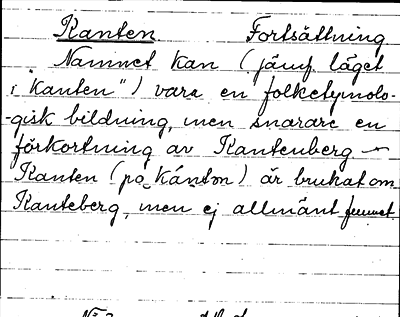 Kanten Fortsättning
Namnet kan (jämf. läget
i "kanten") vara en folketymolo-
-gisk bildning, men snarare en
förkortning av Kantenberg –
Kanten (på Kánton) är brukat om
Kanteberg, men ej allmänt funnet.